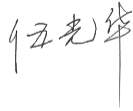 伍光华